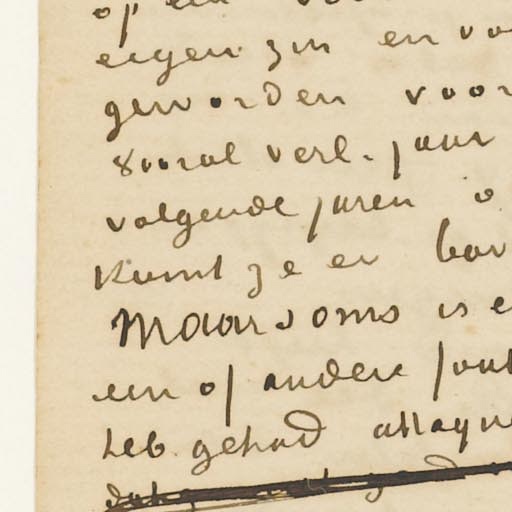 op een
eigen zin en vo
geworden voor
vooral verl. jaar
volgende jaren o
Kunt ge er bov
Maar soms is e
een of andere fout
heb gehad attaqu